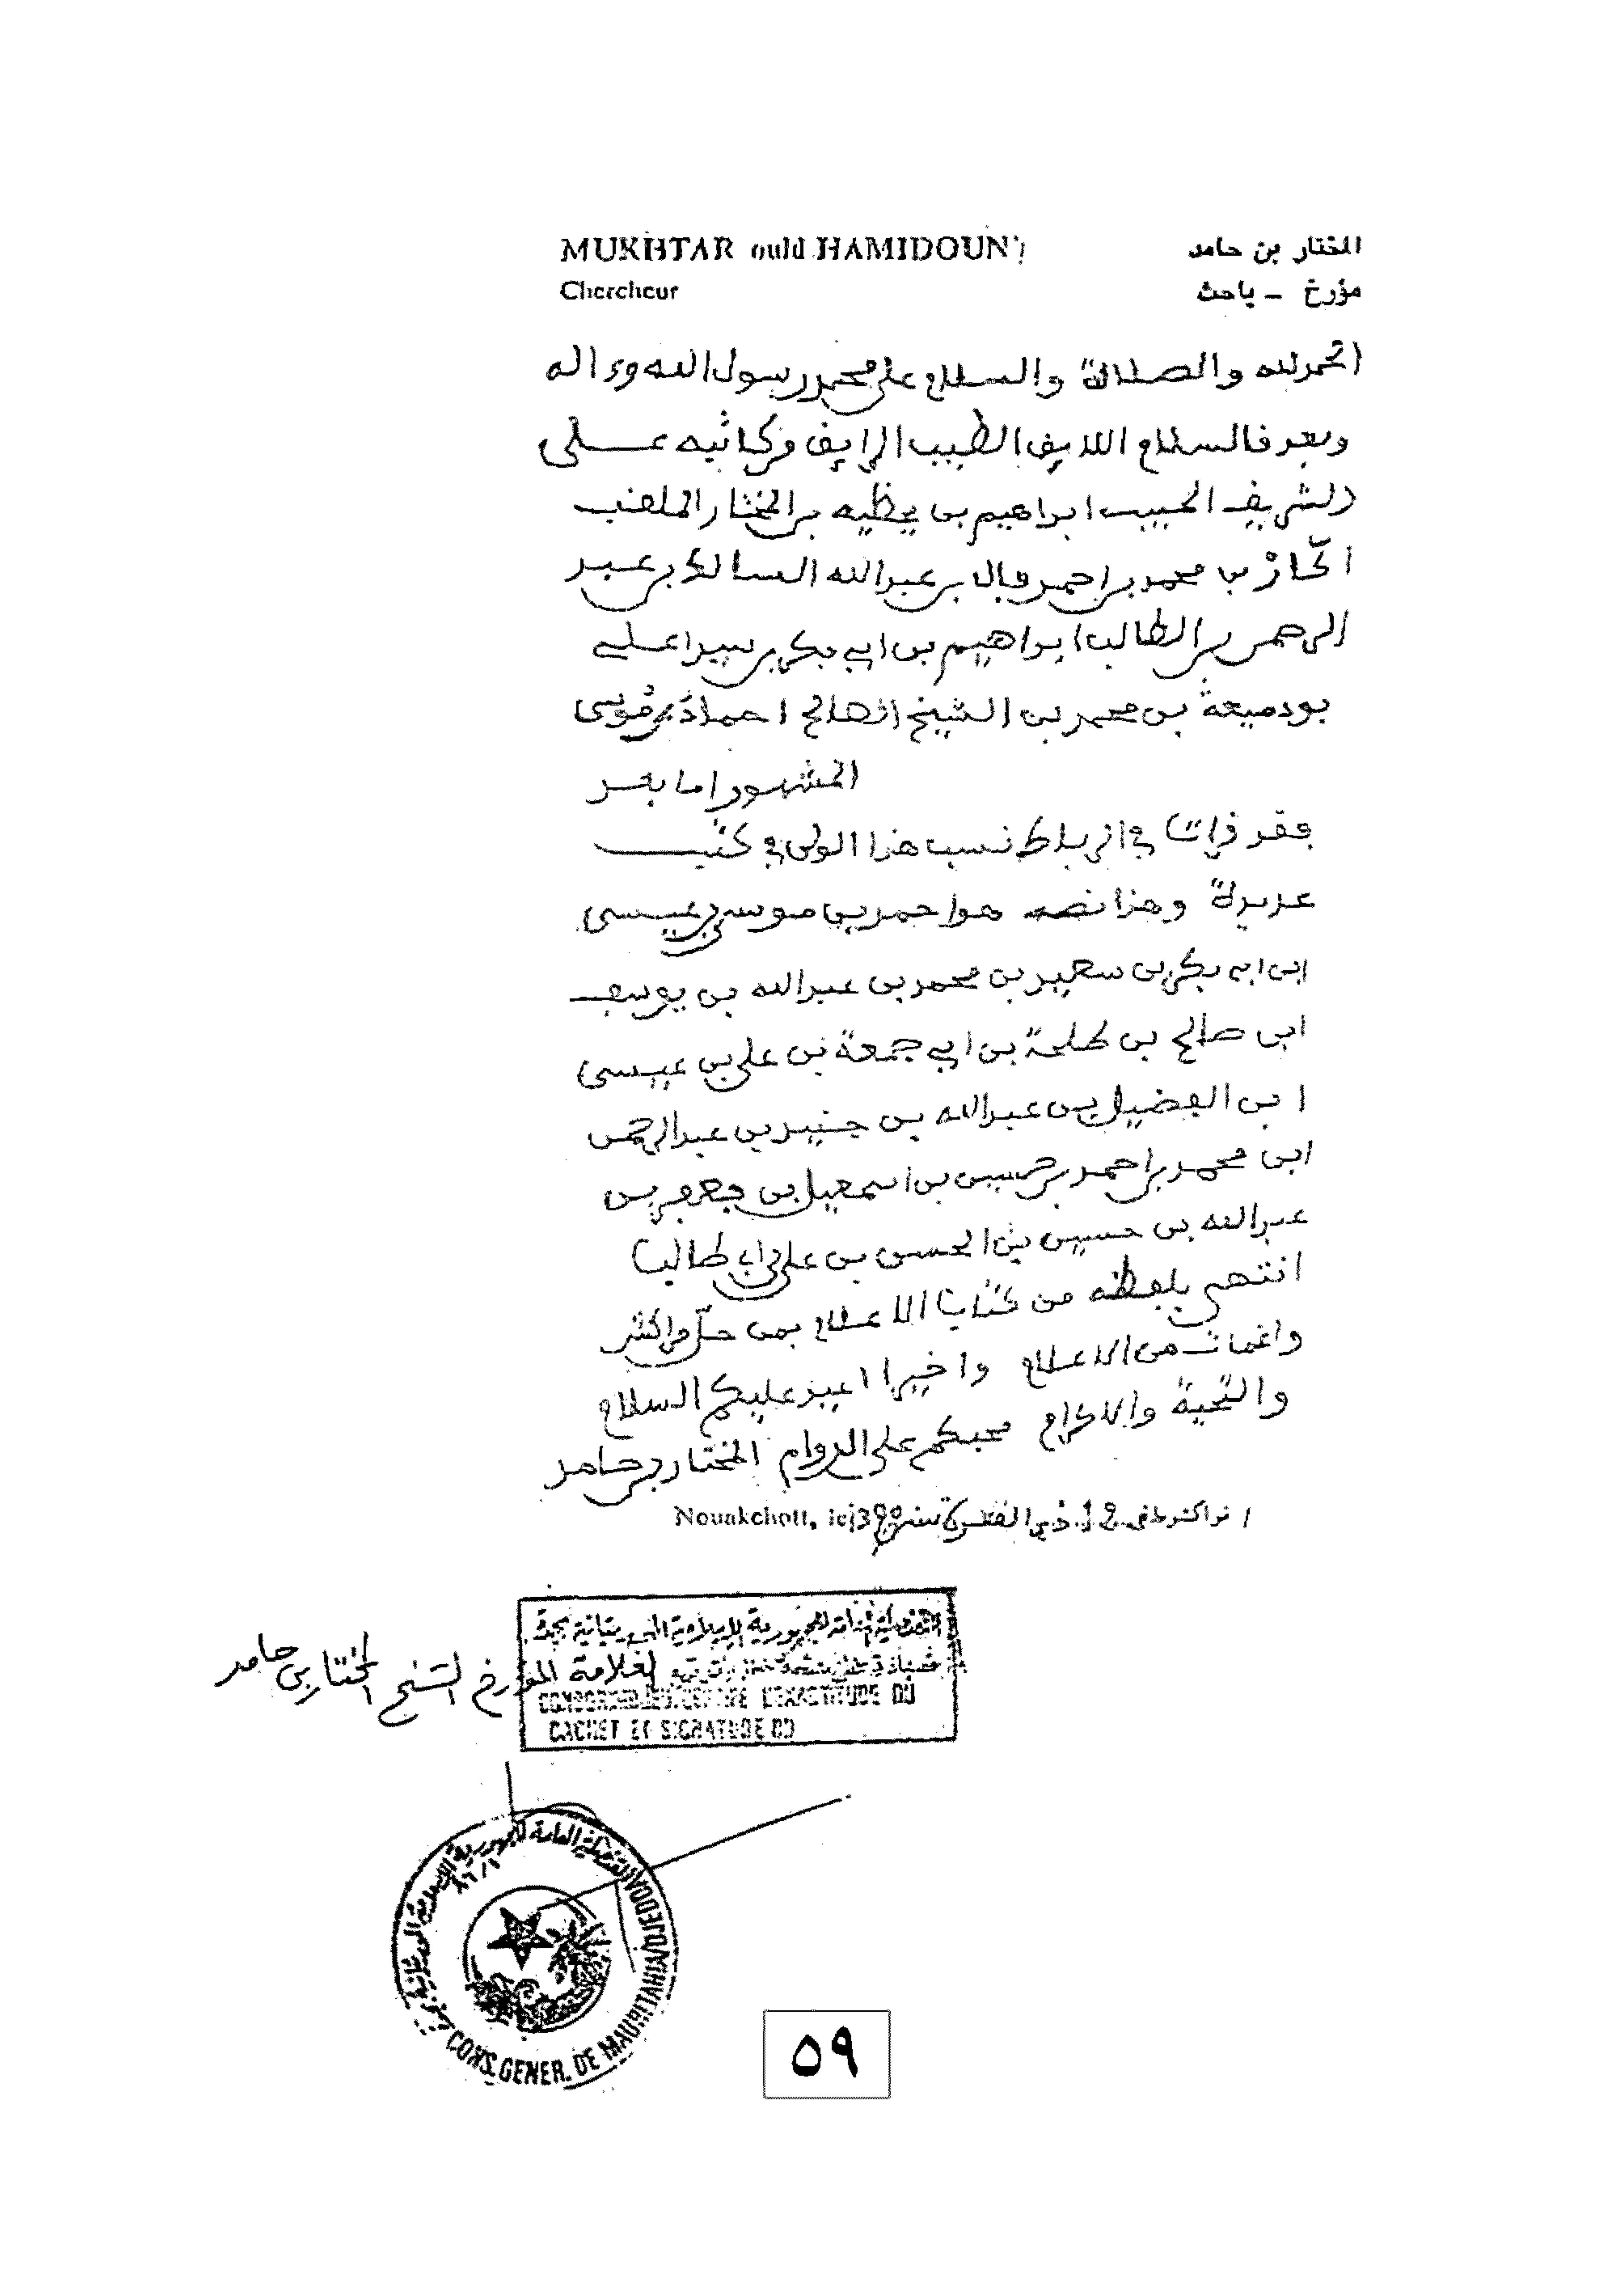 MUKHTAR ould HAMIDOUN
المختار بن حامد
Chercheur
مؤرخ - باحث
الحمد لله والصلاة والسلام على محمد رسول الله وءاله
وبعد فالسلام اللايق الطيب الرايق وبركاته على
الشريف الحبيب ابراهيم بن يحظيه بن المختار الملقب
محمد بن احمد فال بن عبد الله السالك بن عبد
الرحمن بن الطالب ابراهيم بن ابي بكر بن سيد اعلي
بودميعة بن محمد بن الشيخ الصالح احماد بن موسى
المشهور اما بعد
فقد قرات في الرباط نسب هذا الولي في كتب
عديدة وهذا نصه هو احمد بن موسى بن عيسى
ابن ابي بكر بن سعيد بن محمد بن عبد الله بن يوسف
ابن صالح بن طلحة بن ابي جمعة بن علي بن عيسى
ابن الفضيل بن عبد الله بن جنيد بن عبد الرحمن
ابن محمد بن احمد بن حسين بن اسمعيل بن جعفر بن
عبد الله بن حسين بن الحسن بن علي بن ابي طالب
انتهى بلفظه من كتاب الاعلام بمن حل مراكش
واغمات من الاعلام واخيرا اعيد عليكم السلام
والتحية والاكرام محبكم على الدوام المختار بن حامد
نواكشوط في
Nouakchott, le
القنصلية العامة للجمهورية الإسلامية الموريتانية بجدة
العلامة المؤرخ الشيخ المختار بن حامد
L'EXACTITUDE DU
CACHET ET SIGNATURE DU
القنصلية العامة للجمهورية الإسلامية الموريتانية
CONS. GENER. DE MAURITANIE A DJEDDA
٥٩